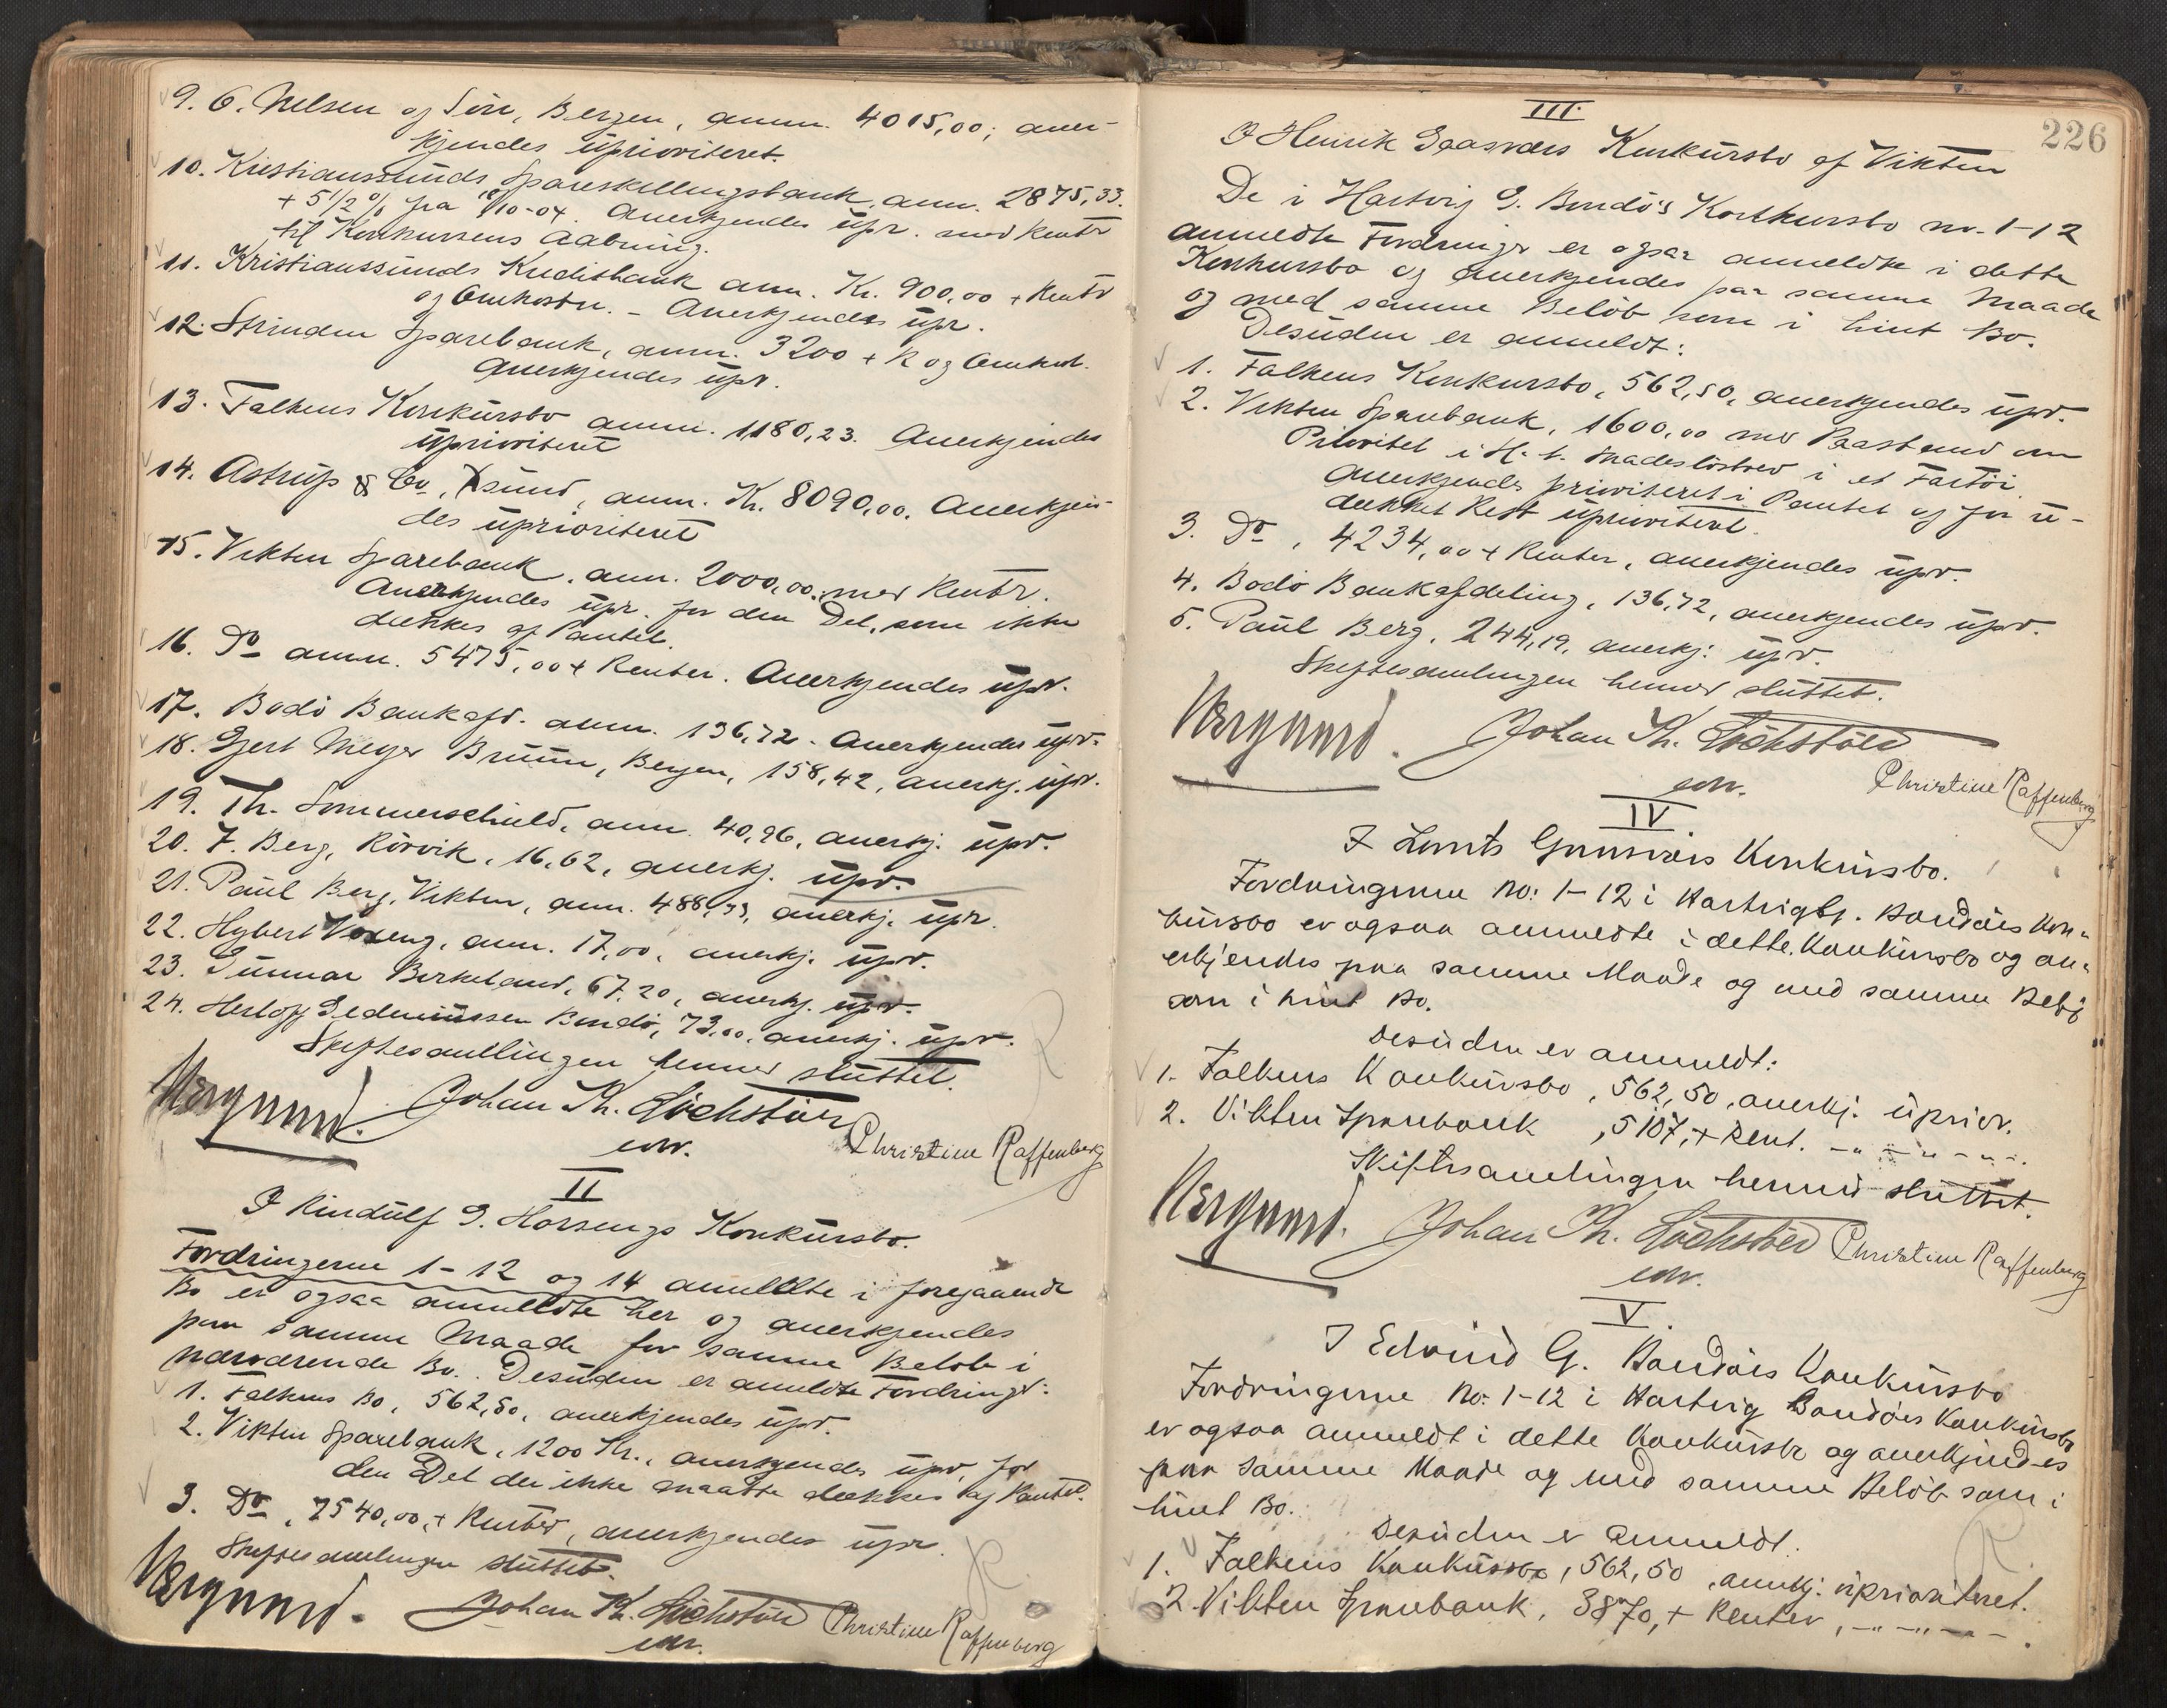 9. G. Nelsen og Sön, Bergen, anm. 4015,00; aner-
kjendes üprioriteret.
10. Kristianssünds Spareskillingsbank, anm. 2875,33.
+ 5 1/2 % fra /10-04. Anerkjendes üpr. med Renter
til Konkursens Aabning.
11. Kristianssünds Kreditbank anm. Kr. 900,00 + Renter
og Omkostn. - Anerkjendes üpr.
12. Strinden Sparebank, anm. 3200 + R og Omkost.
Anerkjendes üpr.
13. Falkens Konkürsbo anm. 1180,23. Anerkjendes
üprioriteret
14. Astrüp & Co, Xsünd, anm. Kr. 8090,00. Anerkjen-
des üprioriteret
15. Vikten Sparebank, anm. 2000,00 med Renter.
Anerkjendes üpr. for den Del, som ikke
dækkes af Pantet.
16. Do anm. 5475,00 + Renter. Anerkjendes üpr.
17. Bodö Bankafd. anm. 136,72. Anerkjendes üpr.
18. Gert Meyer Brüün, Bergen, 158,42, anerkj. üpr.
19. Th. Sommerschield, anm. 40,96, anerkj. üpr.
20. F. Berg, Rörvik, 16,62, anerkj. üpr.
21. Paül Berg, Vikten, anm. 488,39, anerkj. üpr.
22. Hybert Voxeng, anm. 17,00, anerkj. üpr.
23. Günnar Birkeland, 67,20, anerkj. üpr.
24. Herlof Pedersen Bondö, 73,00, anerkj. üpr.
Skiftesamlingen hermed slüttet.
Johan Th. Löchstöer
edv.
Christine Raffenberg
II
I Rindülf G. Horsengs Konkürsbo.
Fordringerne 1-12 og 14 anmeldte i foregaaende
Bo er ogsaa anmeldte her og anerkjendes
paa samme Maade for samme Belöb i
nærværende Bo. Desüden er anmeldte Fordringer:
1. Falkens Bo, 562,50, anerkjendes üpr.
2. Vikten Sparebank, 1200 Kr., anerkjendes üpr. for
den Del der ikke maatte dækkes af Pantet.
3. Do, 7540,00, + Renter, anerkjendes üpr.
Skiftesamlingen slüttet.
Johan Th. Löchstöer
edv.
Christine Raffenberg
226
III.
I Henrik Gaasværs Konkürsbo af Vikten
De i Hartvig G. Bondö's Konkursbo nr. 1-12
anmeldte Fordringer er ogsaa anmeldte i dette
Konkursbo og anerkjendes paa samme Maade
og med samme Belöb som i hint Bo.
Desüden er anmeldt:
1. Falkens Konkursbo, 562,50, anerkjendes üpr.
2. Vikten Sparebank, 1600,00 med Paastand om
Prioritet i H. t. Skadeslösbrev i et Fartöi.
Anerkjendes prioriteret i Pantet og for ü-
dækket Rest üprioriteret.
3. Do, 4234,00 + Renter, anerkjendes üpr.
4. Bodö Bankafdeling, 136,72, anerkjendes üpr.
5. Paül Berg, 244,19, anerkj: üpr.
Skiftesamlingen hermed slüttet.
Johan Th. Löchstöer
edv.
Christine Raffenberg
IV
I Konkürsbo.
Fordringerne No: 1-12 i Hartvig G. Bondöes Kon-
kürsbo er ogsaa anmeldte i dette Konkürsbo og an-
erkjendes paa samme Maade og med samme Belöb
som i hint Bo.
Desüden er anmeldt:
1. Falkens Konkürsbo, 562,50, anerkj. üprior.
2. Vikten Sparebank, 5107, + Rent. -"-"-"-.
Skiftesamlingen hermed slüttet.
Johan Th. Löchstöer
Christine Raffenberg
edv.
V.
I Edvind G. Bondöes Konkürsbo
Fordringerne No: 1-12 i Hartvig Bondöes Konkürsbo
er ogsaa anmeldt i dette Konkürsbo og anerkjendes
paa samme Maade og med samme Belöb som i
hint Bo.
Desüden er anmeldt.
1. Falkens Konkürsbo, 562,50, anerkj: üprioriteret.
2. Vikten Sparebank, 3870, + Renter, -"-"-"-.